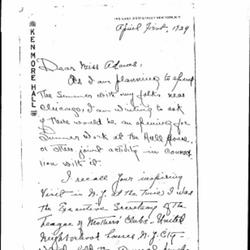 KENMORE HALL
145 EAST 23RD STREET NEW YORK, N.Y.
April first, 1929
Dear Miss Adams:
As I am planning to spend
the summer with my folks near
Chicago, I am writing to ask
if there would be an opening for
summer work at the Hull House,
or other joint activity in connec
tion with it.
I recall your inspiring
visit in N.Y. at the time I was
the Executive Secretary of the
League of Mothers' Clubs - United
Neighborhood Houses N.Y. City